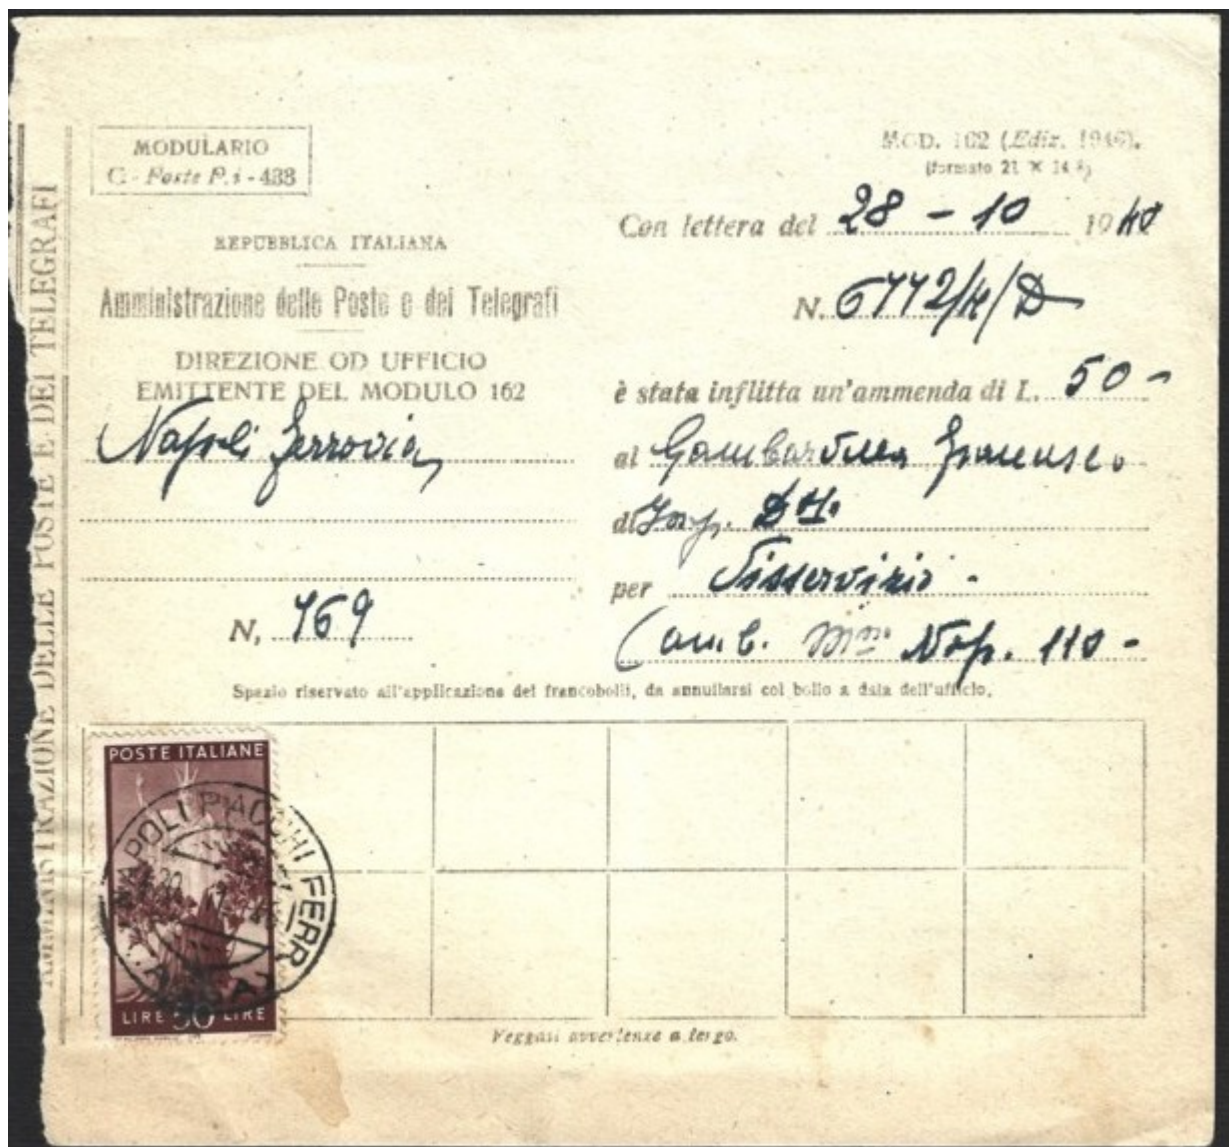 AMMINISTRAZIONE DELLE POSTE E DEI TELEGRAFI
MODULARIO
C - Poste P. i - 433
MOD. 162 (Ediz. 1946).
(formato 21 ×
REPUBBLICA ITALIANA
Amministrazione delle Poste e dei Telegrafi
DIREZIONE OD UFFICIO
EMITTENTE DEL MODULO 162
Napoli Ferrovia
N. 769
Con lettera del 28 - 10 19
N. 6772/
è stata inflitta un'ammenda di L. 50 -
al Gambardella Francesco
di
per Disservizio -
Nap. 110 -
Spazio riservato all'applicazione dei francobolli, da annullarsi col bollo a data dell'ufficio.
POSTE ITALIANE
NAPOLI PACCHI FERR
LIRE 50 LIRE
Veggasi avvertenza a tergo.